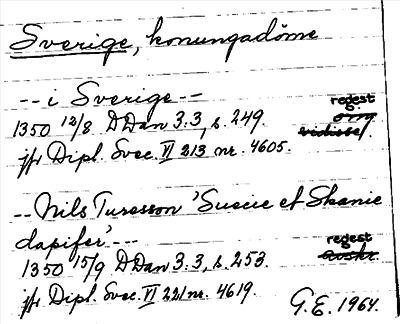 Sverige, konungadöme
--i Sverige--
regest
1350 12/8 DDan 3:3, s. 249.
jfr Dipl. Svec. VI 213 nr. 4605.
--Nils Turesson 'Suecie et Skanie
dapifer'---
regest
1350 15/9 DDan 3:3, s. 253.
jfr Dipl. Svec. VI 221 nr. 4619.
G.E. 1964.